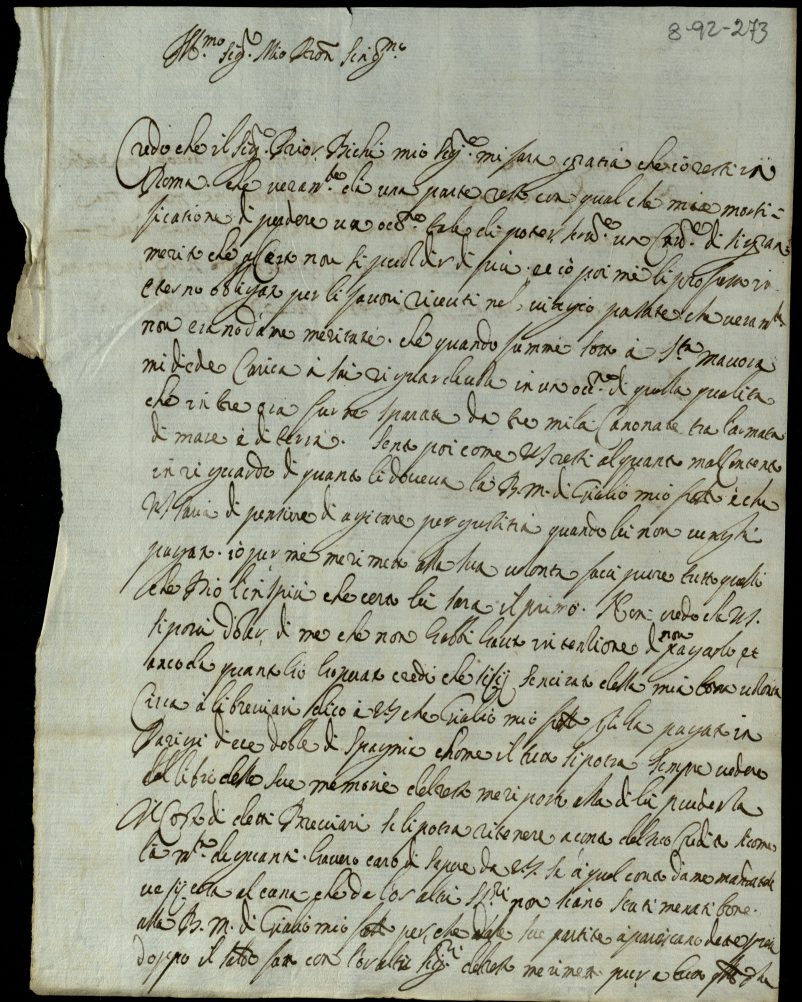 8-92-273
Ill.mo Sig.r Mio Pron Sing.mo
Credo che il Sig.r Prior Bichi mio Sig.r mi fara gratia che io resti in
Roma. che veram.te da una parte resto con qual che mia morti=
ficatione di perdere un oc.ne tale di poter un di si gran
merito che certo non si puol dir di piu. et io poi me li professo in
eterno obligato per li favori ricevuti nel viagio passato che veram.te
non erano da me meritati. che quando fummo sotto à S.ta Maura
mi diede Carica si riguardevole in un oc.ne di quella qualita
che in tre furno sparate da tre mila Canonate tra l'armata
di mare è di terra. Sento poi come VS resti alquanto mal Contento
in riguardo di quanto li doveva la B.M. di Giulio mio è che
VS stava di pensiero di agitare per giustitia quando lui non venghi
pagato. io per me mi rimeto alla sua volonta facci pure tutto quello
che Dio l'inspira che certo lui sara il primo. Non credo che VS.
si possi doler di me che non habbi hauto intentione di non pagarlo et
ancora quanto hò hoperato credo che sij sencirato della mia bona volonta
Circa à li breviari dico à VS che Giulio mio li ha pagati in
Parigi diece doble di Spagnia chome il tutto si potra sempre vedere
dal libro delle sue memorie del resto me riporto alla di lei prudenza
Il Costo di detti Breviari se li potra ritenere a conto del suo Credito sicome
la de guanti. Havero caro di sapere da VS. se à quel conto da me mandatole
ve sij cosa al cuna che da los altri SS.ri non siano stati menati bone.
alla B.M. di Giulio mio per che dale sue partite apariscano date
doppo il saldo fatto con l'os altri Sig.ri del resto me rimetto pur a